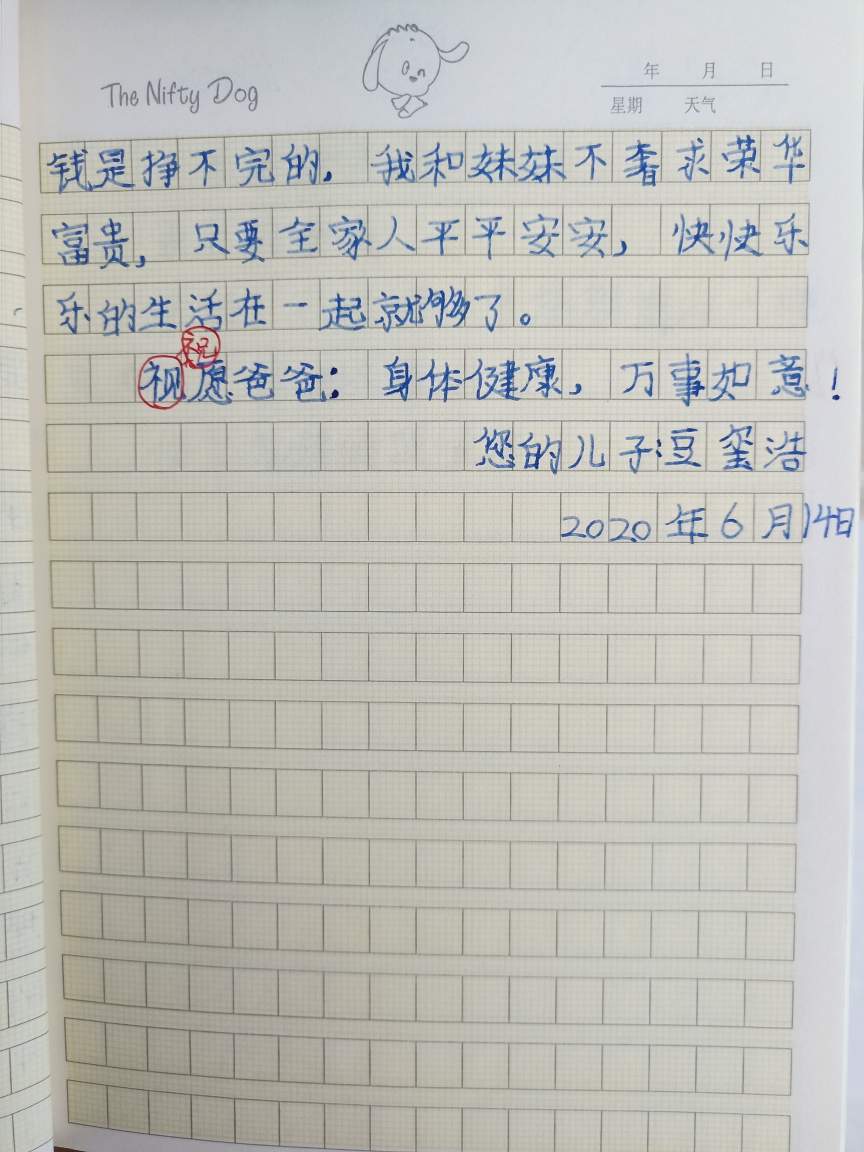 The Nifty Dog
年 月 日
星期 天气
钱是挣不完的，我和妹妹不奢求荣华
富贵，只要全家人平平安安，快快乐
乐的生活在一起就够了。
祝
视愿爸爸：身体健康，万事如意！
您的儿子：豆玺浩
2020年6月14日